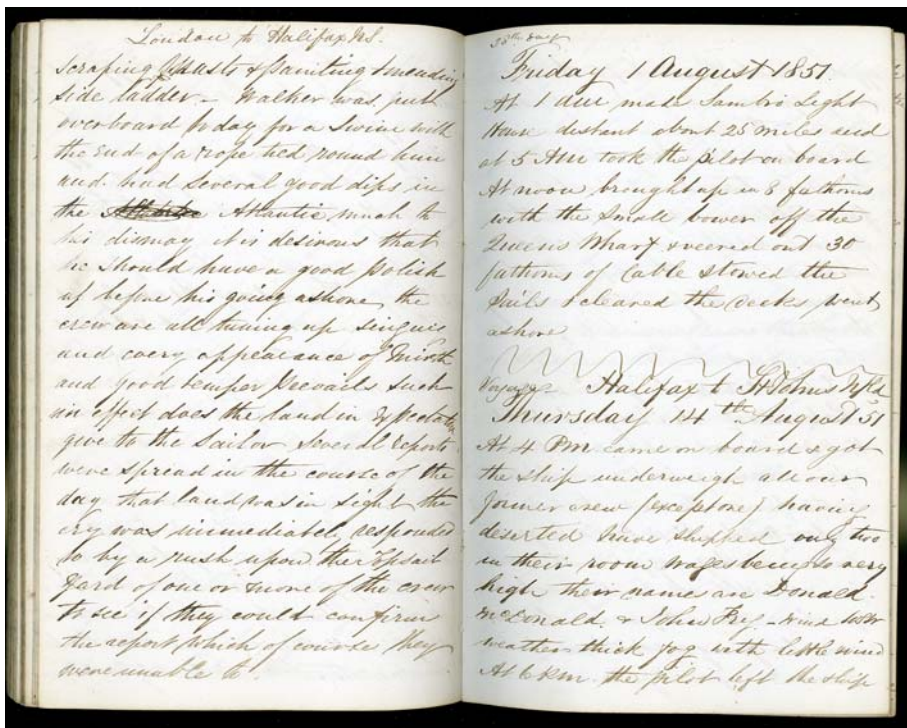 London to Halifax N.S.
Scraping Masts & painting & mending
side ladder - Walker was put
overboard to day for a Swim with
the end of a rope tied round him
and had Several good dips in
the Atlantic much to
his dismay it is desirous that
he should have a good Polish
up before his going ashore, the
crew are all tuning up
and every appearance of Mirth
and good temper Prevails Such
an effect does the land in Expectation
give to the Sailor Several reports
were spread in the course of the
day that land was in Sight the
cry was immediately responded
to by a rush upon the Topsail
Yard of one or more of the crew
to see if they could confirm
the report which of course they
were unable to.
35th day
Friday 1 August 1851.
At 1 am made Sambro Light
House distant about 25 miles and
at 5 AM took the pilot on board
At noon brought up in 8 fathoms
with the Small bower off the
Queens Wharf & veered out 30
fathoms of Cable stowed the
Sails & cleared the decks went
ashore
Voyage - Halifax to St Johns Nfld
Thursday 14th August 51
At 4 PM came on board & got
the ship underweigh all our
former crew (except one) having
deserted have shipped only two
in their room wages being so very
high their names are Donald
McDonald & John - Wind
weather thick fog with little wind
At 6 the pilot left the ship